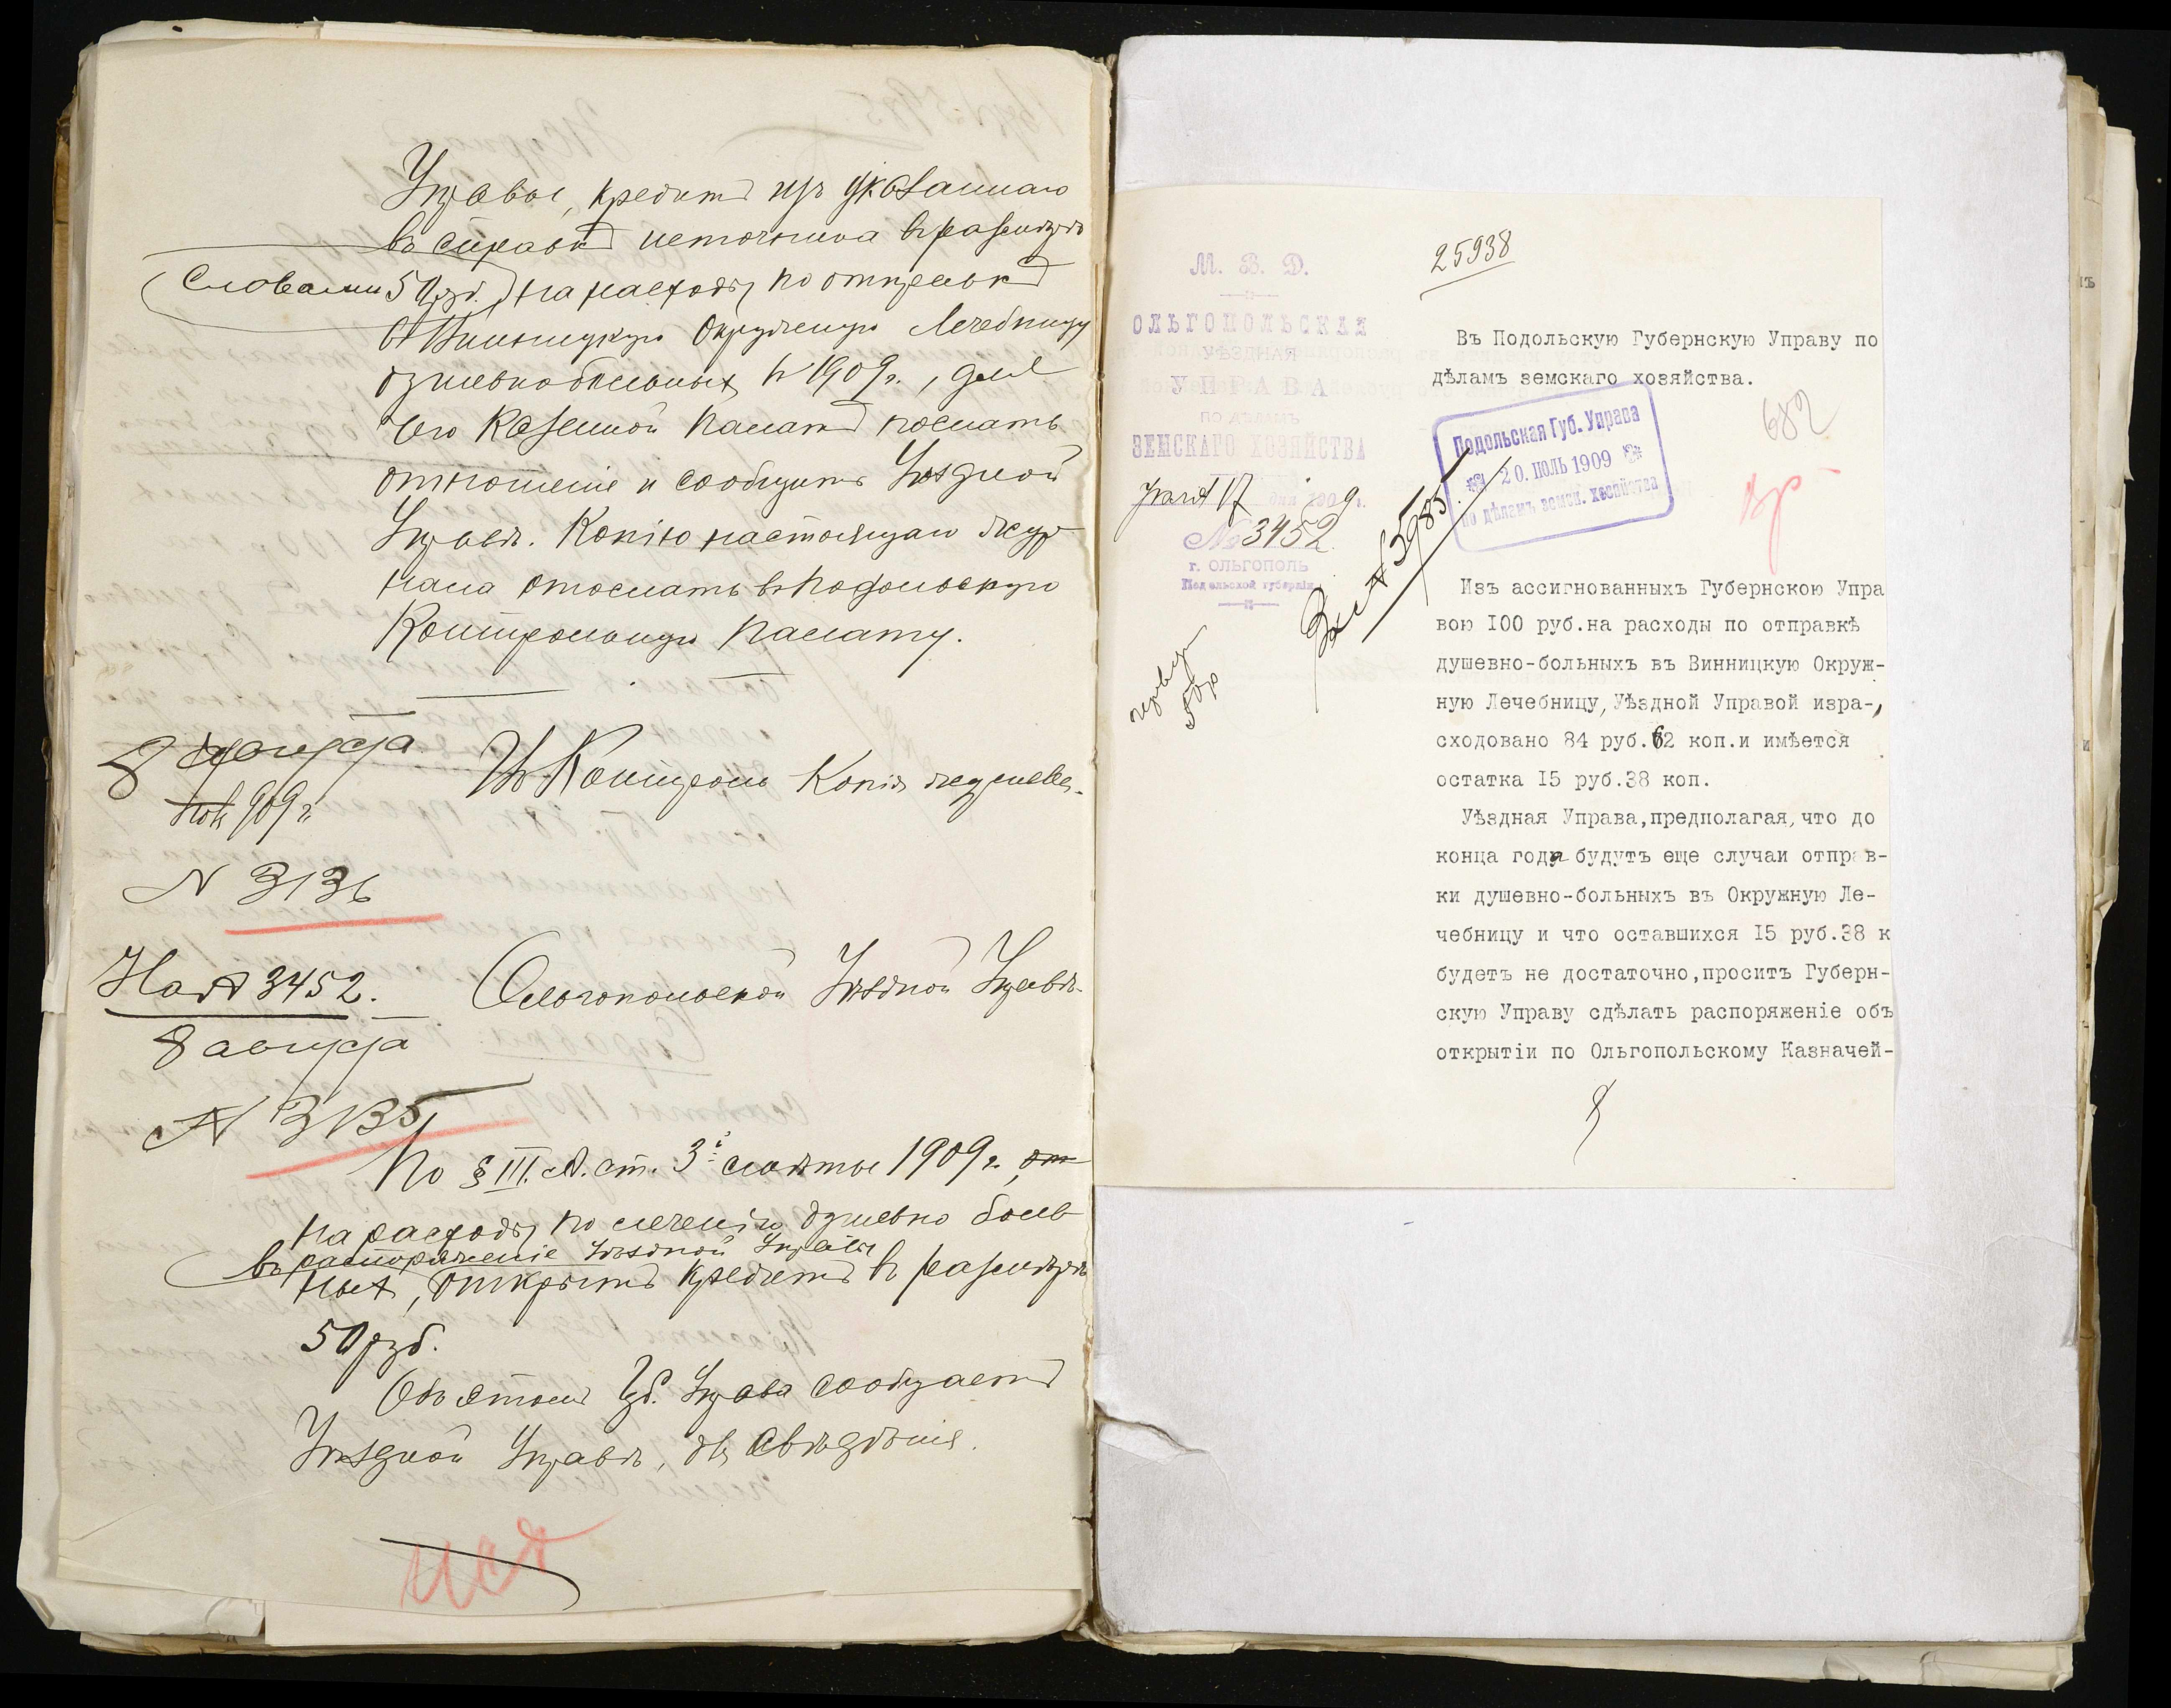 Управы, кредитъ изъ указаннаго
въ справкѣ источника въ размѣрѣ
Словами 50 руб. на расходы по отправкѣ
въ Винницкую Окружную Лечебницу
душевнобольныхъ въ 1909 г., для
чего Казенной Палатѣ послать
отношеніе и сообщить Уѣздной
Управѣ. Копію настоящаго жур
нала отослать въ Подольскую
Контрольную Палату.
8 августа
909 г.
Въ Контроль Копія журнала.
N 3136
На № 3452.
Ольгопольской Уѣздной Управѣ.
8 августа
№ 3135
По § III. ст. 3й смѣты 1909 г.,
на расходы по леченію душевно боль
въ распоряженіе Уѣздной Управы
ныхъ, открытъ кредитъ въ размѣрѣ
50 руб.
Объ этомъ Губ. Управа сообщаетъ
Уѣздной Управѣ, для свѣдѣнія.
М. В. Д.
ОЛЬГОПОЛЬСКАЯ
УѢЗДНАЯ
УПРАВА
ПО ДѢЛАМЪ
ЗЕМСКАГО ХОЗЯЙСТВА
17 дня 1909 г.
№ 3452
г. ОЛЬГОПОЛЬ
Подольской губерніи
25938
Въ Подольскую Губернскую Управу по
дѣламъ земскаго хозяйства.
682
Подольская Губ. Управа
20. ІЮЛЬ 1909
по дѣламъ земск. хозяйства
№ 5985
50 р
Изъ ассигнованныхъ Губернскою Упра
вою I00 руб.на расходы по отправкѣ
душевно-больныхъ въ Винницкую Окруж-
ную Лечебницу, Уѣздной Управой изра-,
сходовано 84 руб.62 коп.и имѣется
остатка I5 руб.38 коп.
Уѣздная Управа,предполагая,что до
конца года будутъ еще случаи отправ-
ки душевно-больныхъ въ Окружную Ле-
чебницу и что оставшихся I5 руб.38 к
будетъ не достаточно,проситъ Губерн-
скую Управу сдѣлать распоряженіе объ
открытіи по Ольгопольскому Казначей-